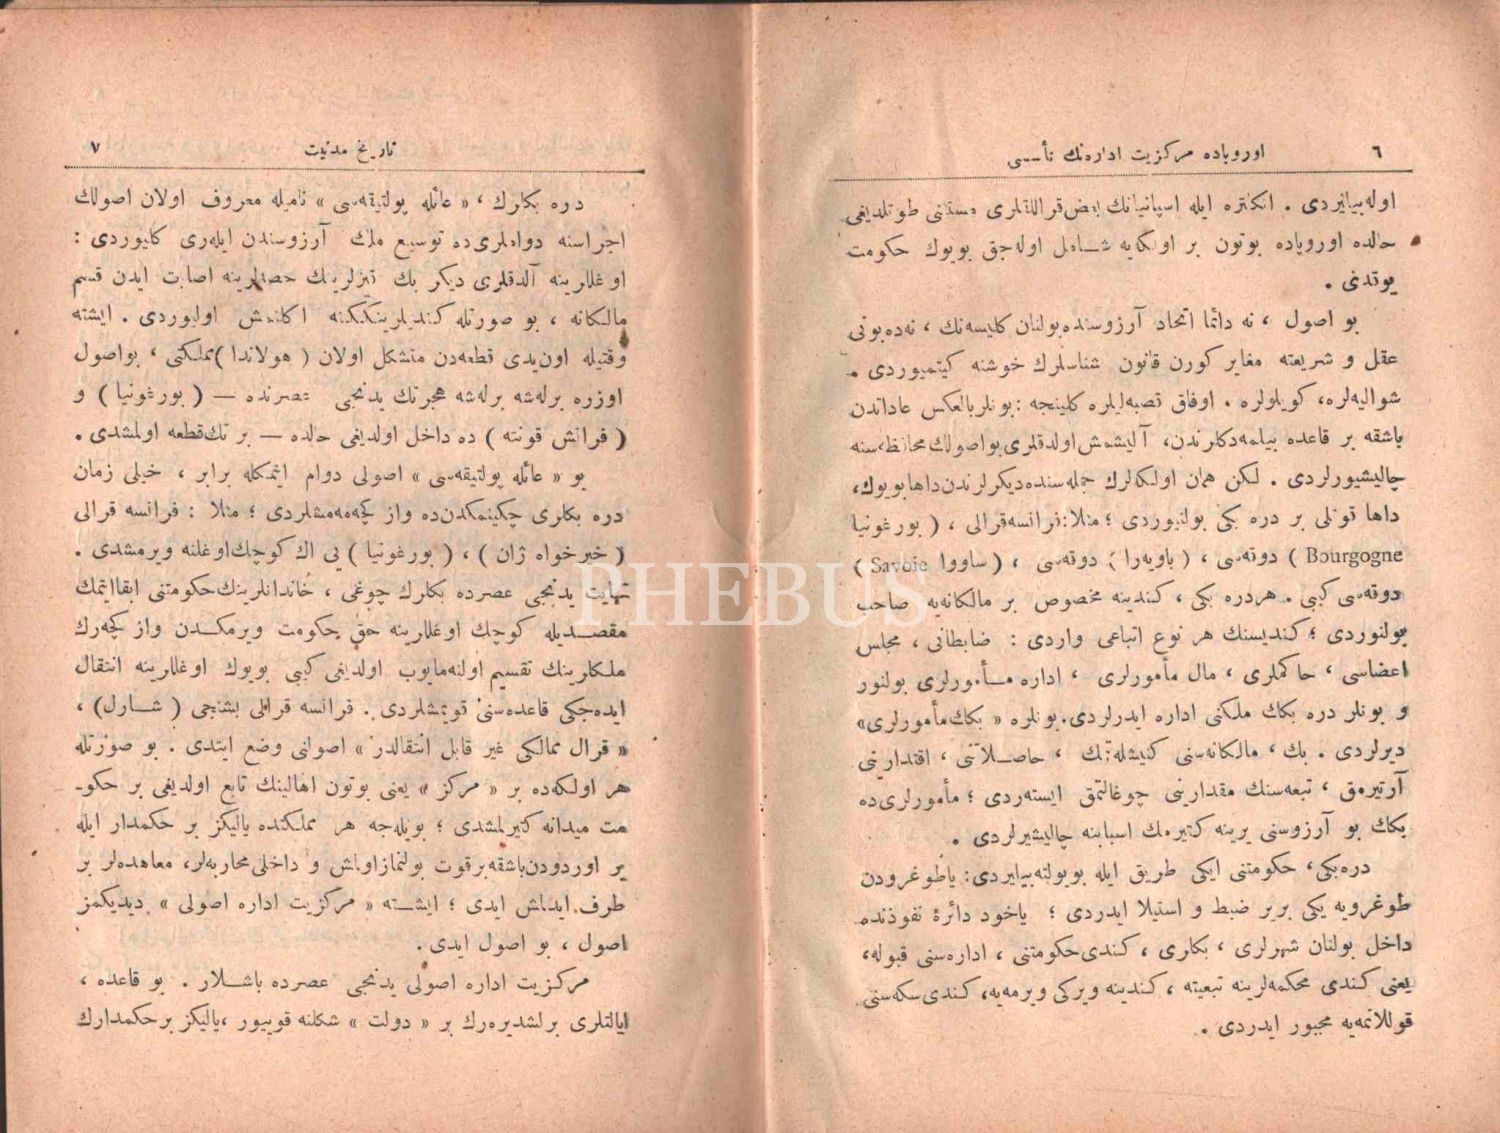 ٦ اوروپاده مركزيت اداره‌نك تأسسى
اوله‌بيليردى . انكلتره ايله اسپانيانك بعض قراللقلرى مستثنى طوتلديغى
حالده اوروپاده بوتون بر اولكه‌يه شامل اوله‌جق بويوك حكومت
يوقدى .
بو اصول ، نه دائما اتحاد آرزوسنده‌بولنان كليسه‌نك ، نه‌ده‌بونى
عقل و شريعته مغاير كورن قانون شناسلرك خوشنه كيتميوردى .
شواليه‌لره، كويلولره . اوفاق قصبه‌ليلره كلينجه : بونلربالعكس عاداتدن
باشقه بر قاعده بيلمه‌دكلرندن، آليشمش‌اولدقلرى‌بواصولك‌محافظه‌سنه
چاليشيورلردى . لكن همان اولكه‌لرك جمله‌سنده‌ديكرلرندن‌داهابويوك،
داها قوتلى بر دره بكى بولنيوردى ؛ مثلا: فرانسه‌قرالى ، ( بورغونيا
Bourgogne ) دوقه‌سى ، ( باويه‌را ) دوقه‌سى ، ( ساووا Savoie )
دوقه‌سى كبى . هردره بكى ، كندينه مخصوص بر مالكانه‌يه صاحب
بولنوردى ؛ كنديسنك هر نوع اتباعى واردى : ضابطانى ، مجلس
اعضاسى ، حاكملرى ، مال مأمورلرى ، اداره مأمورلرى بولنور
و بونلر دره بكك ملكنى اداره ايدرلردى. بونلره « بكك‌مأمورلرى»
ديرلردى . بك ، مالكانه‌سنى كنيشله‌تمك ، حاصلاتنى ، اقتدارينى
آرتيرمق ، تبعه‌سنك مقدارينى چوغالتمق ايسته‌ردى ؛ مأمورلرى‌ده
بكك بو آرزوسنى يرينه كتيرمك اسبابنه چاليشيرلردى .
دره‌بكى، حكومتنى ايكى طريق ايله بويولته‌بيليردى: ياطوغرودن
طوغرويه يكى يرلر ضبط و استيلا ايدردى ؛ ياخود دائرهٔ نفوذنده
داخل بولنان شهرلرى ، بكلرى ، كندى‌حكومتنى ، اداره‌سنى قبوله،
يعنى كندى محكمه‌لرينه تبعيته ، كندينه ويركى ويرمه‌يه، كندى‌سكه‌سنى
قوللانمه‌يه مجبور ايدردى .
تاريخ مدنيت ٧
دره بكلرك ، « عائله پولتيقه‌سى » ناميله معروف اولان اصولك
اجراسنه دواملرى‌ده توسيع ملك آرزوسندن ايلرى كليوردى :
اوغللرينه آلدقلرى ديكر بك قيزلرينك حصه‌لرينه اصابت ايدن قسم
مالكانه ، بو صورتله كنديلرينككنه اكلنمش اوليوردى . ايشته
وقتيله اون‌يدى قطعه‌دن متشكل اولان ( هولاندا ) مملكتى ، بواصول
اوزره برله‌شه برله‌شه هجرتك يدنجى عصرنده — ( بورغونيا ) و
( فرانش قونته ) ده داخل اولديغى حالده — بر تك‌قطعه اولمشدى .
بو « عائله پولتيقه‌سى » اصولى دوام ايتمكله برابر ، خيلى زمان
دره بكلرى چكينمكدن‌ده واز كچمه‌مشلردى ؛ مثلا : فرانسه قرالى
( خيرخواه ژان ) ، ( بورغونيا ) يى اك كوچك‌اوغلنه ويرمشدى .
نهايت يدنجى عصرده بكلرك چوغى ، خاندانلرينك‌حكومتنى ابقاايتمك
مقصديله كوچك اوغللرينه حق حكومت ويرمكدن واز كچه‌رك
ملكلرينك تقسيم اولنه‌مايوب اولديغى كبى بويوك اوغللرينه انتقال
ايده‌جكى قاعده‌سنى قويمشلردى . فرانسه قرالى بشنجى ( شارل ) ،
« قرال ممالكى غير قابل انتقالدر » اصولنى وضع ايتدى . بو صورتله
هر اولكه‌ده بر « مركز » يعنى بوتون اهالينك تابع اولديغى بر حكو-
مت ميدانه كتيرلمشدى ؛ بويله‌جه هر مملكتده يالكز بر حكمدار ايله
بر اوردودن‌باشقه‌برقوت بولنمازاولمش و داخلى محاربه‌لر، معاهده‌لر بر
طرف ايدلمش ايدى ؛ ايشته « مركزيت اداره اصولى » ديديكمز
اصول ، بو اصول ايدى .
مركزيت اداره اصولى يدنجى عصرده باشلار . بو قاعده ،
ايالتلرى برلشديره‌رك بر « دولت » شكلنه قويبور ، يالكز برحكمدارك
PHEBUS